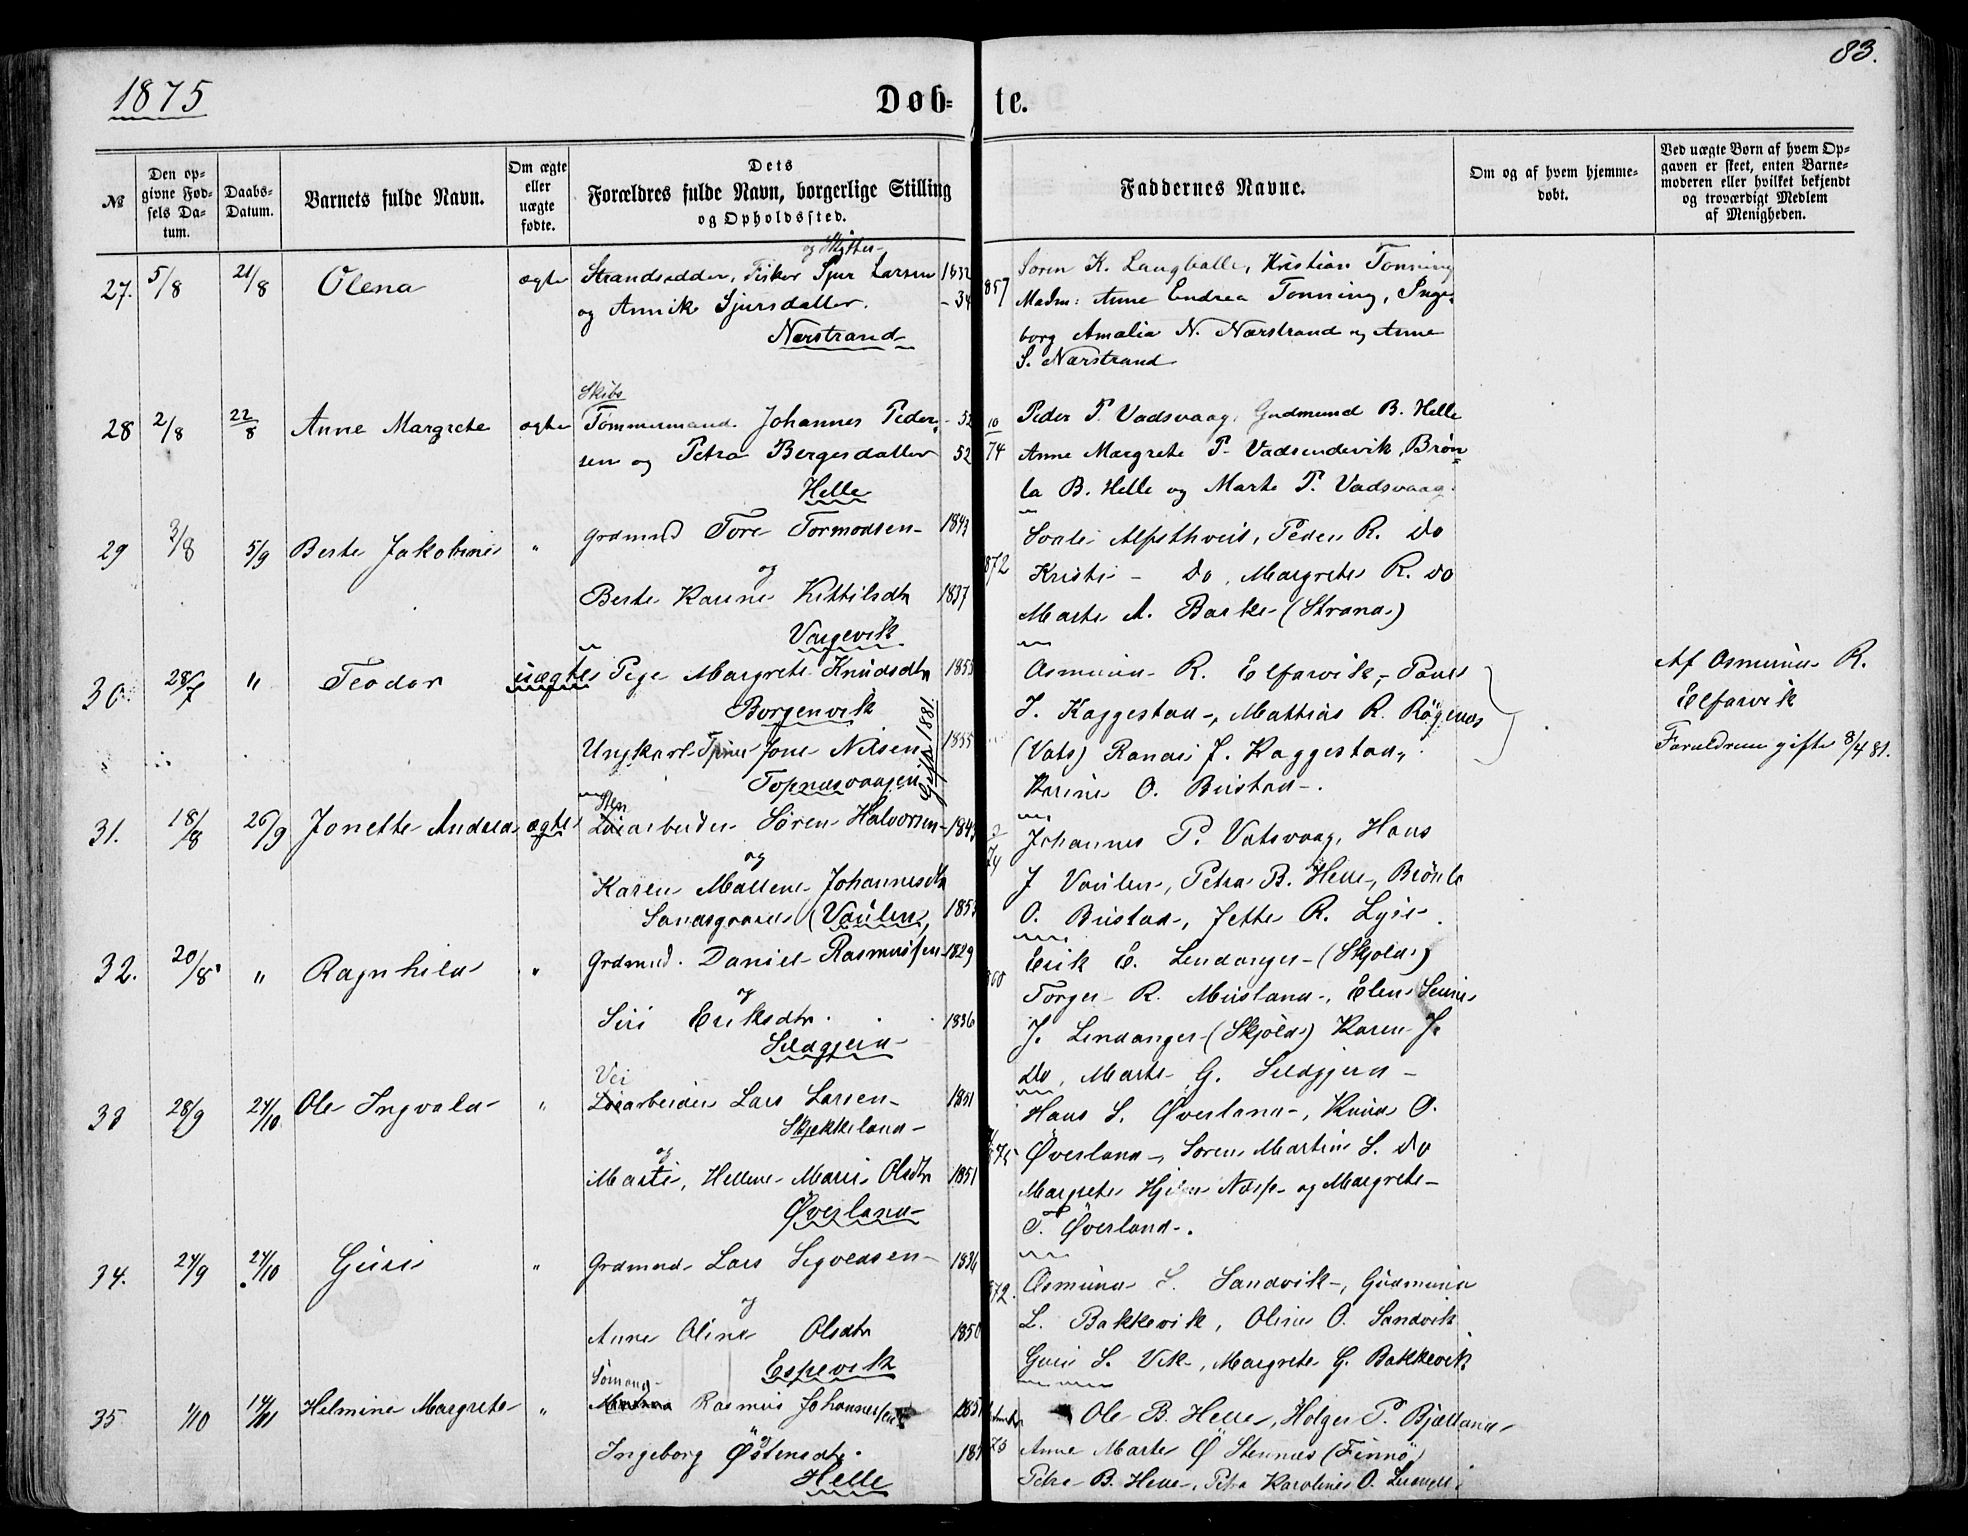 83.
1875
Døb-te.
№
Den opgivne Fødsels Datum.
Daabs-Datum.
Barnets fulde Navn.
Om ægte eller uægte fødte.
Dets Forældres fulde Navn, borgerlige Stilling og Opholdssted.
Faddernes Navne.
Om og af hvem hjemmedøbt.
Ved uægte Børn af hvem Opgaven er skeet, enten Barnemoderen eller hvilket bekjendt og troværdigt Medlem af Menigheden.
27. 5/8 21/8 Olena ægte Strandsidder, Fisker og Skytter Sjur Larsen 1832
og Annik Sjursdatter. - 34
Nærstrand
857
Søren K. Langballe, Kristian Tonning
Madm: Anne Endrea Tonning, Inge-
borg Amalia N. Nærstrand og Anne
S. Nærstrand
28 2/8 22/8 Anne Margrete ægte Skibs
Tømmermand Johannes Peder- - 52
sen og Petra Bergesdatter 52
Helle
10/74
Peder P. Vadsvaag, Gudmund B. Helle
Anne Margrete P. Vadsendevik, Brøn-
la B. Helle og Marte P. Vadsvaag.
29 3/8 5/9 Berte Jakobine " Grdmnd Tore Tormodsen 1843
og
Berte Karine Kittilsdtr 1837
Vargevik
872
Peder R. Do
Kristi - Do, Margrete R. Do
Marte A. Barke (Strand)
30. 28/7 " Teodor uægte Pige Margrete Knudsdtr 1853
Borgenvik
Ungkarl Jone Nilsen 1855
Topnesvaagen
Gift 1881
Osmund R. Elfarvik, Poul
J. Kaggestad, Mattias R. Røgenes
(Vats) Randi J. Kaggestad,
Karine O. Bustad.
Af Osmund R.
Elfarvik
Forældrene gifte 8/4 81.
31. 18/8 26/9 Jonette Andrea ægte Sten
arbeider Søren Halvorsen 1843
og
Karen Mallene Johannesdtr
Sandsgaard (Vaulen) 1853
2/74
Johannes P. Vatsvaag, Hans
J Vaulen, Petra B. Helle, Brønla
O. Bustad, Jette R. Lysie.
32. 20/8 " Ragnhild " Grdmnd. Daniel Rasmussen 1829
og
Siri Eriksdtr. 1836
Seldgjerd
860
Erik E. Lendanger (Skjold)
Torger R. Musland, Elen Serine
J. Lendanger (Skjold) Karen J.
do, Marte G. Seldgjerd
33 28/9 24/10 Ole Ingvald " Vei
arbeider Lars Larsen 1851
Skjekkeland
og
Marte, Hellene Marie Olsdtr 1851
Øverland
875
Hans S. Øverland, Knud O.
Øverland, Soren Martin S. Do
Margrete Næss og Margrete
T. Øverland.
34. 24/9 24/10 Guri " Grdmnd Lars Sigvedsen 1836
og
Anne Oline Olsdtr 1850
Espevik
872.
Osmund S. Sandvik, Gudmund
L. Bakkevik, Oline O. Sandvik
Guri S. Vik, Margrete G. Bakkevik
35 1/10 14/11 Helmine Margrete " Sømand
Rasmus Johannessen 1851
og
Ingeborg Østensdtr.
Helle
75
Ole B. Helle, Holger P. Bjelland
Anne Marte Ø Stennes (Finnø)
Petra B. Helle, Petra Karoline O.